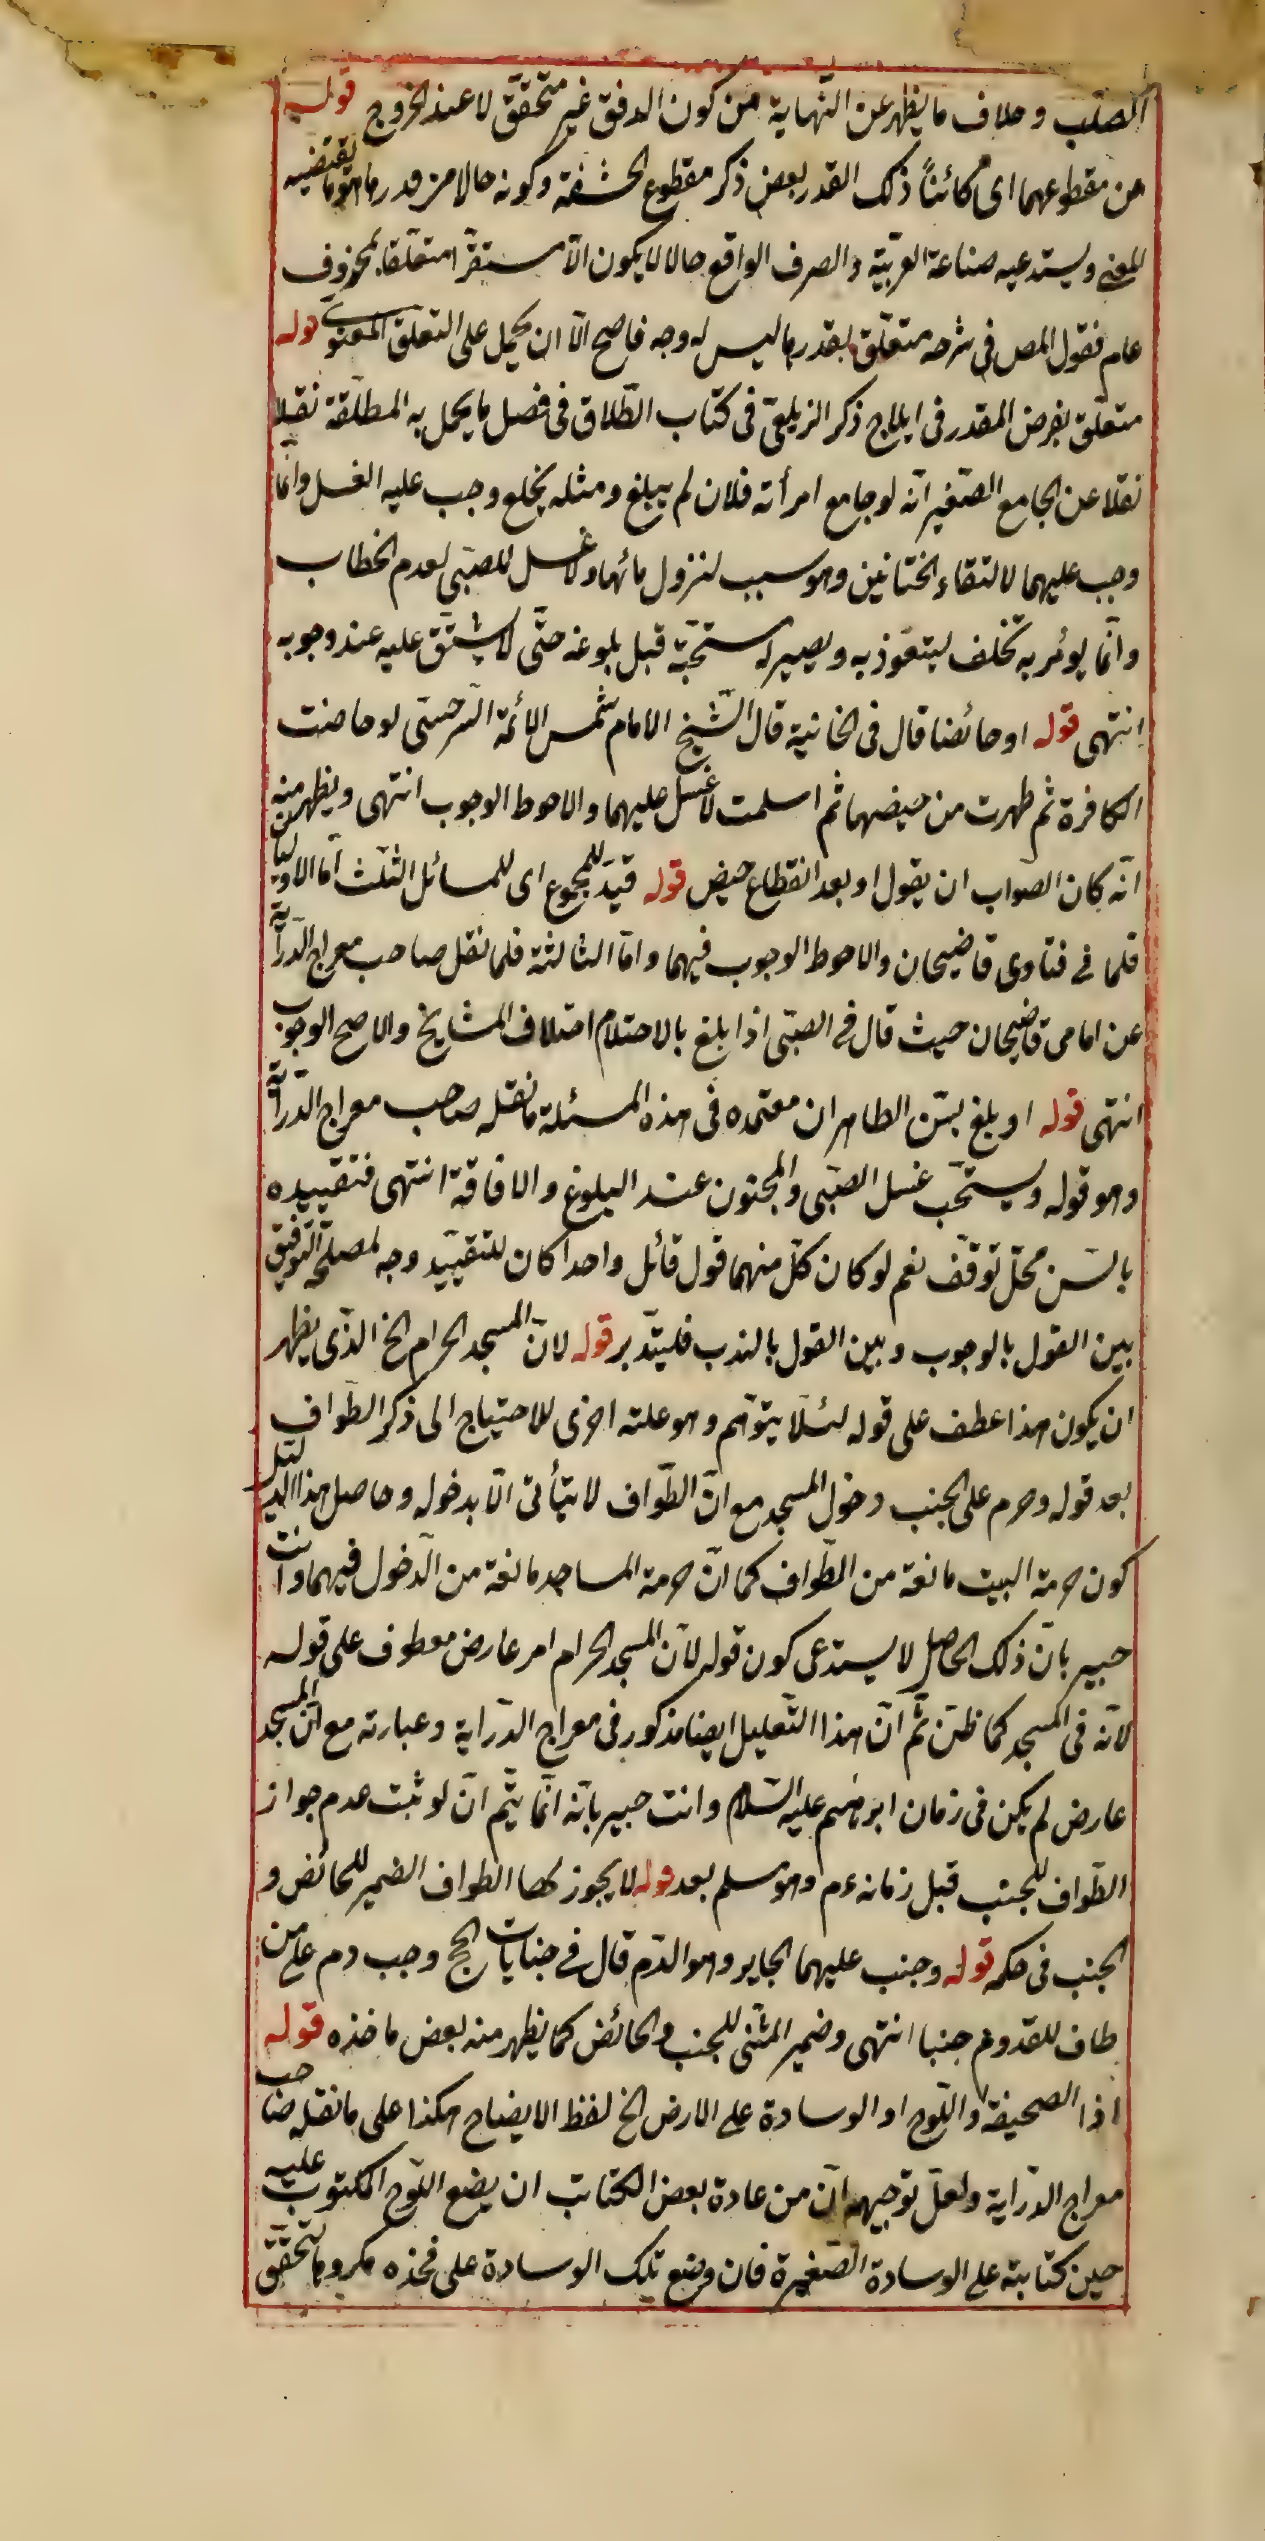 الصلب وخلاف ما يظهر عن النهاية من كون الدفق غير متحقق لا عند الخروج قوله
من مقطوعهما اى كائناً ذلك القدر بعض ذكر مقطوع الحشفة وكونه حالا من قدر ما هو ما يقتضيه
المعنى ويستدعيه صناعة العربية والصرف الواقع حالا لا يكون الا مستقرا متعلقا بمحذوف
عام فقول المص فى شرحه متعلق بقدر ما ليس له وجه فاصح الا ان يحمل على التعلق المعنوى قوله
متعلق بفرض المقدر فى ايلاج ذكر الزيلعى فى كتاب الطلاق فى فصل ما يحل به المطلقة نقلا
نقلا عن الجامع الصغير انه لو جامع امرأته فلان لم يبلغ ومثله يجامع وجب عليه الغسل وانما
وجب عليهما لالتقاء الختانين وهو سبب لنزول مائها ولا غسل للصبى لعدم الخطاب
وانما يؤمر به تخلف ليتعوذ به ويصير له ستحبة قبل بلوغه حتى لا يشق عليه عند وجوبه
انتهى قوله او حائضا قال فى الخانية قال الشيخ الامام شمس الائمة السرخسى لو حاضت
الكافرة ثم طهرت من حيضهما ثم اسلمت لا غسل عليهما والاحوط الوجوب انتهى ويظهر منه
انه كان الصواب ان يقول او بعد انقطاع حيض قوله قيد للمجموع اى للمسائل الثلث اما الاوليان
فلما فى فتاوى قاضيخان والاحوط الوجوب فيهما واما الثالثة فلما نقل صاحب معراج الدراية
عن امامى قاضيخان حيث قال فى الصبى اذا بلغ بالاحتلام اختلاف المشايخ والاصح الوجوب
انتهى قوله او بلغ بسن الظاهر ان معتمده فى هذه المسئلة ما نقله صاحب معراج الدراية
وهو قوله ويستحب غسل الصبى والمجنون عند البلوغ والافاقة انتهى فتقييده
بالسن محل توقف نعم لو كان كل منهما قول قائل واحدا كان للتقييد وجه لمصلحة التوفيق
بين القول بالوجوب وبين القول بالندب فليتدبر قوله لان المسجد الحرام الخ الذى يظهر
ان يكون هذا عطف على قوله لئلا يتوهم وهو علته اخرى للاحتياج الى ذكر الطواف
بعد قوله وحرم على الجنب دخول المسجد مع ان الطواف لا يتأتى الا بدخوله وحاصل هذا الدليل
كون حرمة البيت مانعة من الطواف كما ان حرمة المساجد مانعة من الدخول فيهما وانت
خبير بان ذلك الحاصل لا يستدعى كون قوله لان المسجد الحرام امر عارض معطوف على قوله
لانه فى المسجد كما ظن ثم ان هذا التعليل ايضا مذكور فى معراج الدراية وعبارته مع ان المسجد
عارض لم يكن فى زمان ابرهيم عليه السلام وانت خبير بانه انما يتم ان لو ثبت عدم جواز
الطواف للجنب قبل زمانه ءم وهو مسلم بعد قوله لا يجوز لهما الطواف الضمير للحائض و
الجنب فى حكمه قوله وجنب عليهما الجابر وهو الدم قال فى جنايات الحج وجب دم على من
طاف للقدوم جنبا انتهى وضمير المثنى للجنب والحائض كما يظهر منه بعض ما خذه قوله
اذا الصحيفة واللوح او الوسادة على الارض الخ لفظ الايضاح هكذا على ما نقله صاحب
معراج الدراية ولعل توجيهه ان من عادة بعض الكتاب ان يضع اللوح المكتوب عليه
حين كتابته على الوسادة الصغيرة فان وضع تلك الوسادة على فخذه مكروه لتحقق